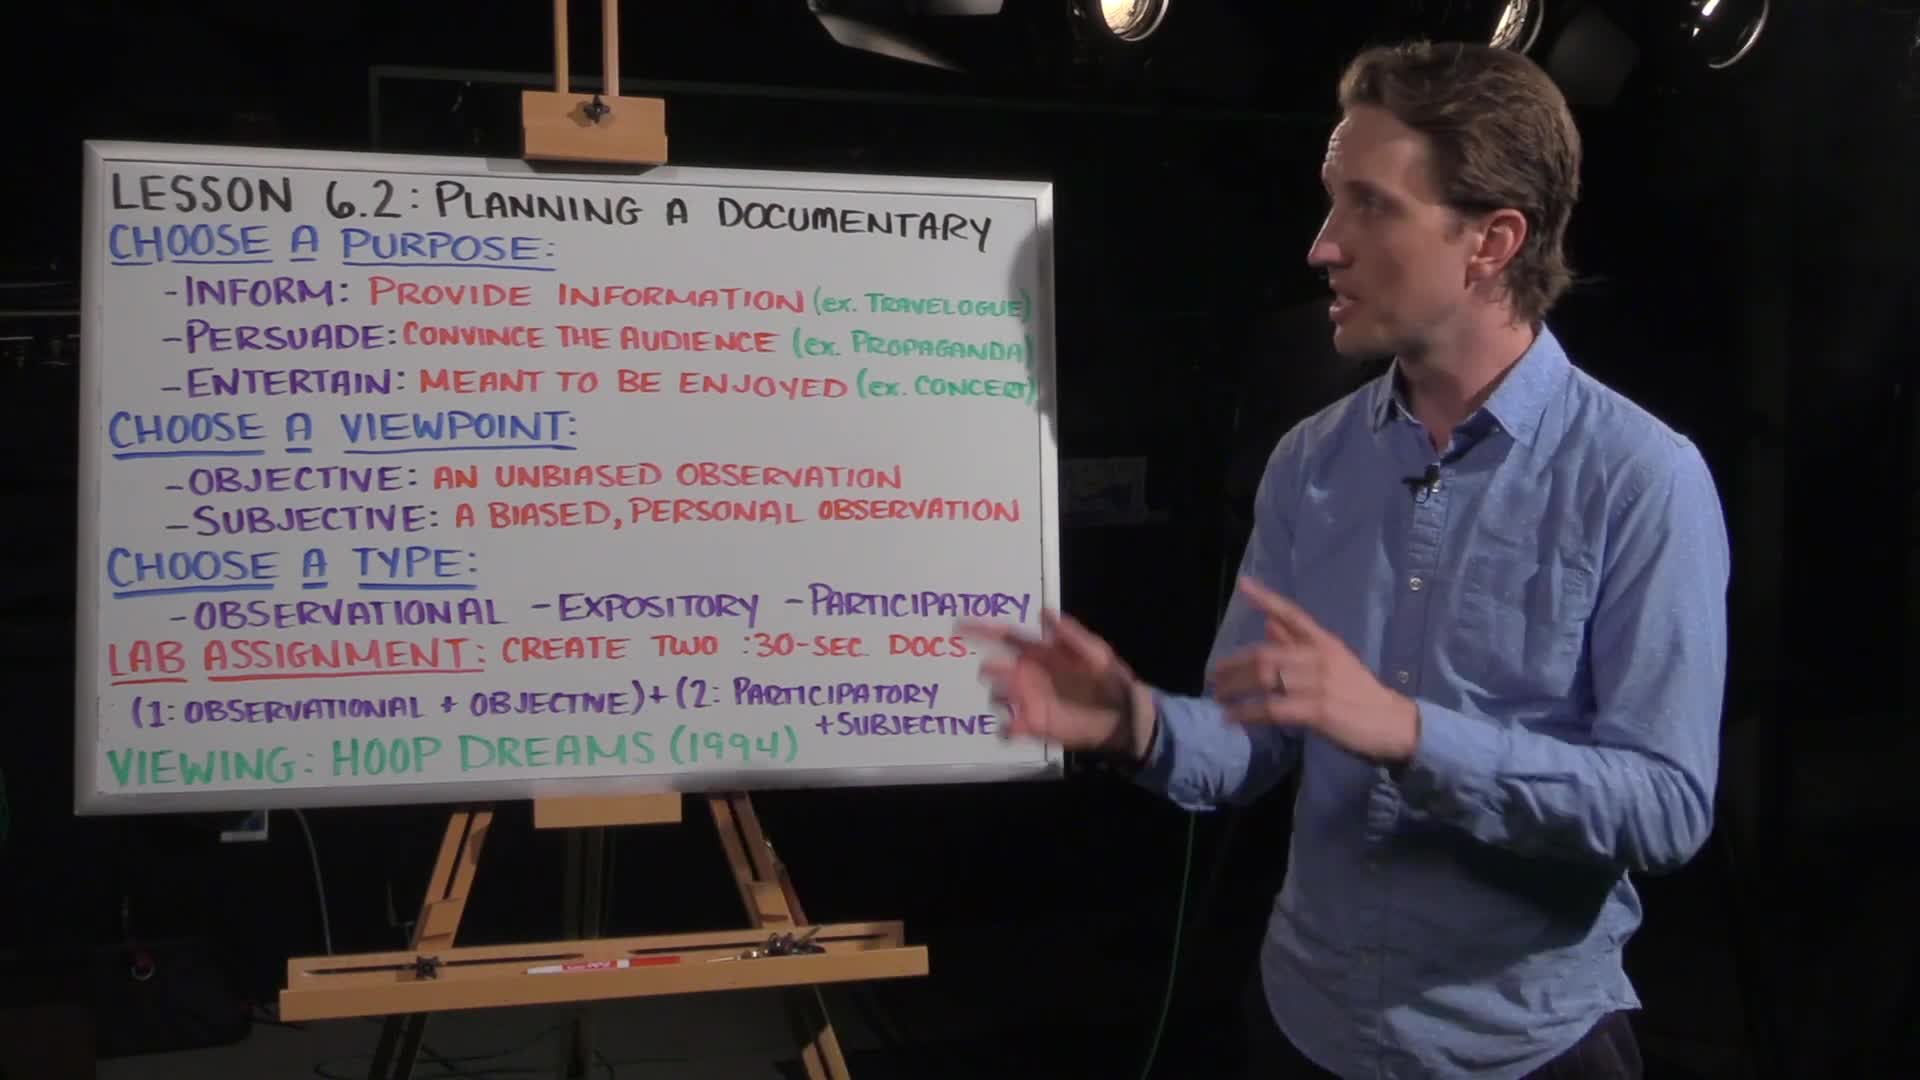 LESSON 6.2: PLANNING A DOCUMENTARY
CHOOSE A PURPOSE:
-INFORM: PROVIDE INFORMATION (ex. TRAVELOGUE)
-PERSUADE: CONVINCE THE AUDIENCE (ex. PROPAGANDA)
-ENTERTAIN: MEANT TO BE ENJOYED (ex. CONCERT)
CHOOSE A VIEWPOINT:
-OBJECTIVE: AN UNBIASED OBSERVATION
-SUBJECTIVE: A BIASED, PERSONAL OBSERVATION
CHOOSE A TYPE:
-OBSERVATIONAL -EXPOSITORY -PARTICIPATORY
LAB ASSIGNMENT: CREATE TWO :30-SEC DOCS.
(1: OBSERVATIONAL + OBJECTIVE) + (2: PARTICIPATORY
+SUBJECTIVE)
VIEWING: HOOP DREAMS (1994)